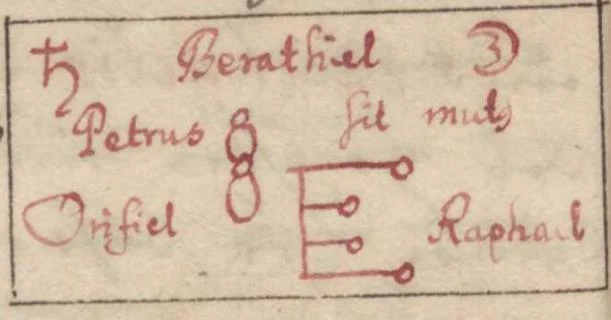 ♄ Berathiel 3
Petrus sit mutus
Orifiel Raphael